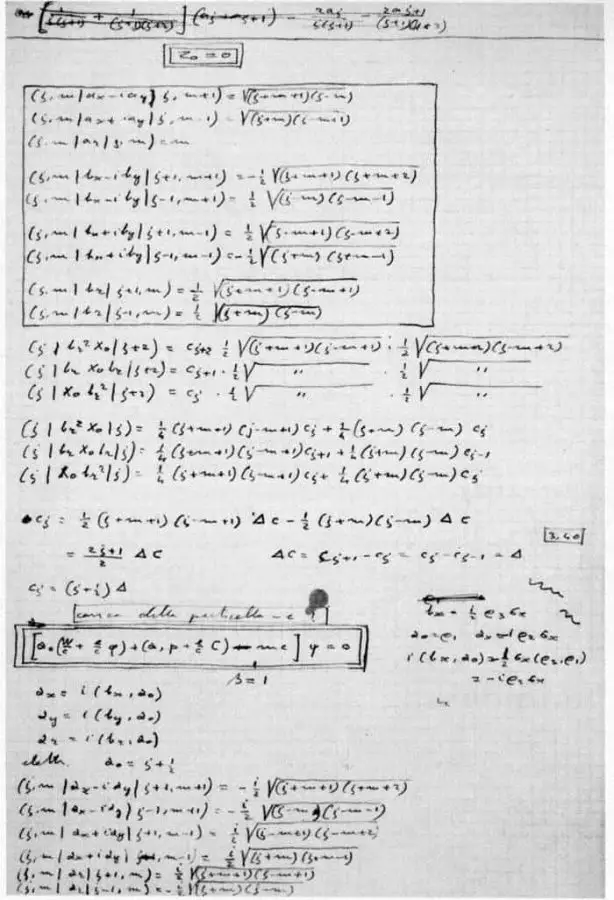 [1/s(s+1) + 1/(s+1)(s+2)] (as+as+1) − 2as/s(s+1) − 2as+1/(s+1)(s+2)
Z₀ = 0
(s,m | ax−iay | s, m+1) = √(s+m+1)(s−m)
(s,m | ax+iay | s, m−1) = √(s+m)(s−m+1)
(s,m | az | s, m) = m
(s,m | bx−iby | s+1, m+1) = −½ √(s+m+1)(s+m+2)
(s,m | bx−iby | s−1, m+1) = ½ √(s−m)(s−m−1)
(s,m | bx+iby | s+1, m−1) = ½ √(s−m+1)(s−m+2)
(s,m | bx+iby | s−1, m−1) = −½ √(s+m)(s+m−1)
(s,m | bz | s+1, m) = ½ √(s+m+1)(s−m+1)
(s,m | bz | s−1, m) = ½ √(s+m)(s−m)
(s | bz² X₀ | s+2) = cs+2 ½ √(s+m+1)(s−m+1) · ½ √(s+m+2)(s−m+2)
(s | bz X₀ bz | s+2) = cs+1 · ½ √ " · ½ √ "
(s | X₀ bz² | s+2) = cs · ½ √ " · ½ √ "
(s | bz² X₀ | s) = ¼ (s+m+1)(s−m+1) cs + ¼ (s+m)(s−m) cs
(s | bz X₀ bz | s) = ¼ (s+m+1)(s−m+1) cs+1 + ¼ (s+m)(s−m) cs−1
(s | X₀ bz² | s) = ¼ (s+m+1)(s−m+1) cs + ¼ (s+m)(s−m) cs
cs = ½ (s+m+1)(s−m+1) Δc − ½ (s+m)(s−m) Δc
= 2s+1/2 Δc Δc = cs+1 − cs = cs − cs−1 = Δ
cs = (s+½) Δ
carica della particella −e
[a₀(W/c + e/c φ) + (a, p + e/c C) − mc] ψ = 0
s = 1
bx = ½ ρ₃ σx
a₀ = ρ₁ ax = iρ₂ σx
i(bx, a₀) = ½ σx (ρ₃, ρ₁)
= −iρ₂ σx
ax = i (bx, a₀)
ay = i (by, a₀)
az = i (bz, a₀)
a₀ = s+½
(s,m | ax−iay | s+1, m+1) = −i/2 √(s+m+1)(s+m+2)
(s,m | ax−iay | s−1, m+1) = −i/2 √(s−m)(s−m−1)
(s,m | ax+iay | s+1, m−1) = i/2 √(s−m+1)(s−m+2)
(s,m | ax+iay | s−1, m−1) = i/2 √(s+m)(s+m−1)
(s,m | az | s+1, m) = i/2 √(s+m+1)(s−m+1)
(s,m | az | s−1, m) = −i/2 √(s+m)(s−m)